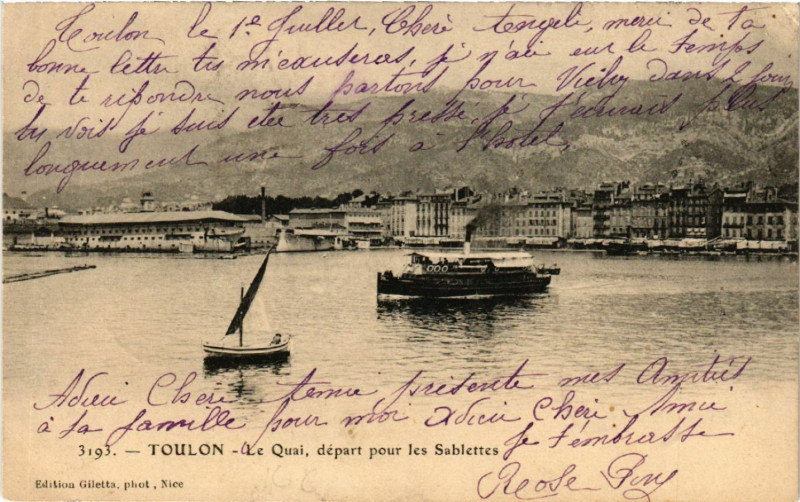 Toulon le 1e Juillet, Cherè Angéle, merci de ta
bonne lettre tu m'excuseras, je n'ai eut le temps
de te repondre nous partons pour Vichy dans 2 jours
tu vois si je suis été très pressé, je t'ecrirais plus
longuement une fois à l'hotel,
Adieu Chère Amie présente mes Amitiés
à ta famille pour moi Adieu Chéri Amie
Je t'embrasse
3193. — TOULON - Le Quai, départ pour les Sablettes
Edition Giletta, phot, Nice